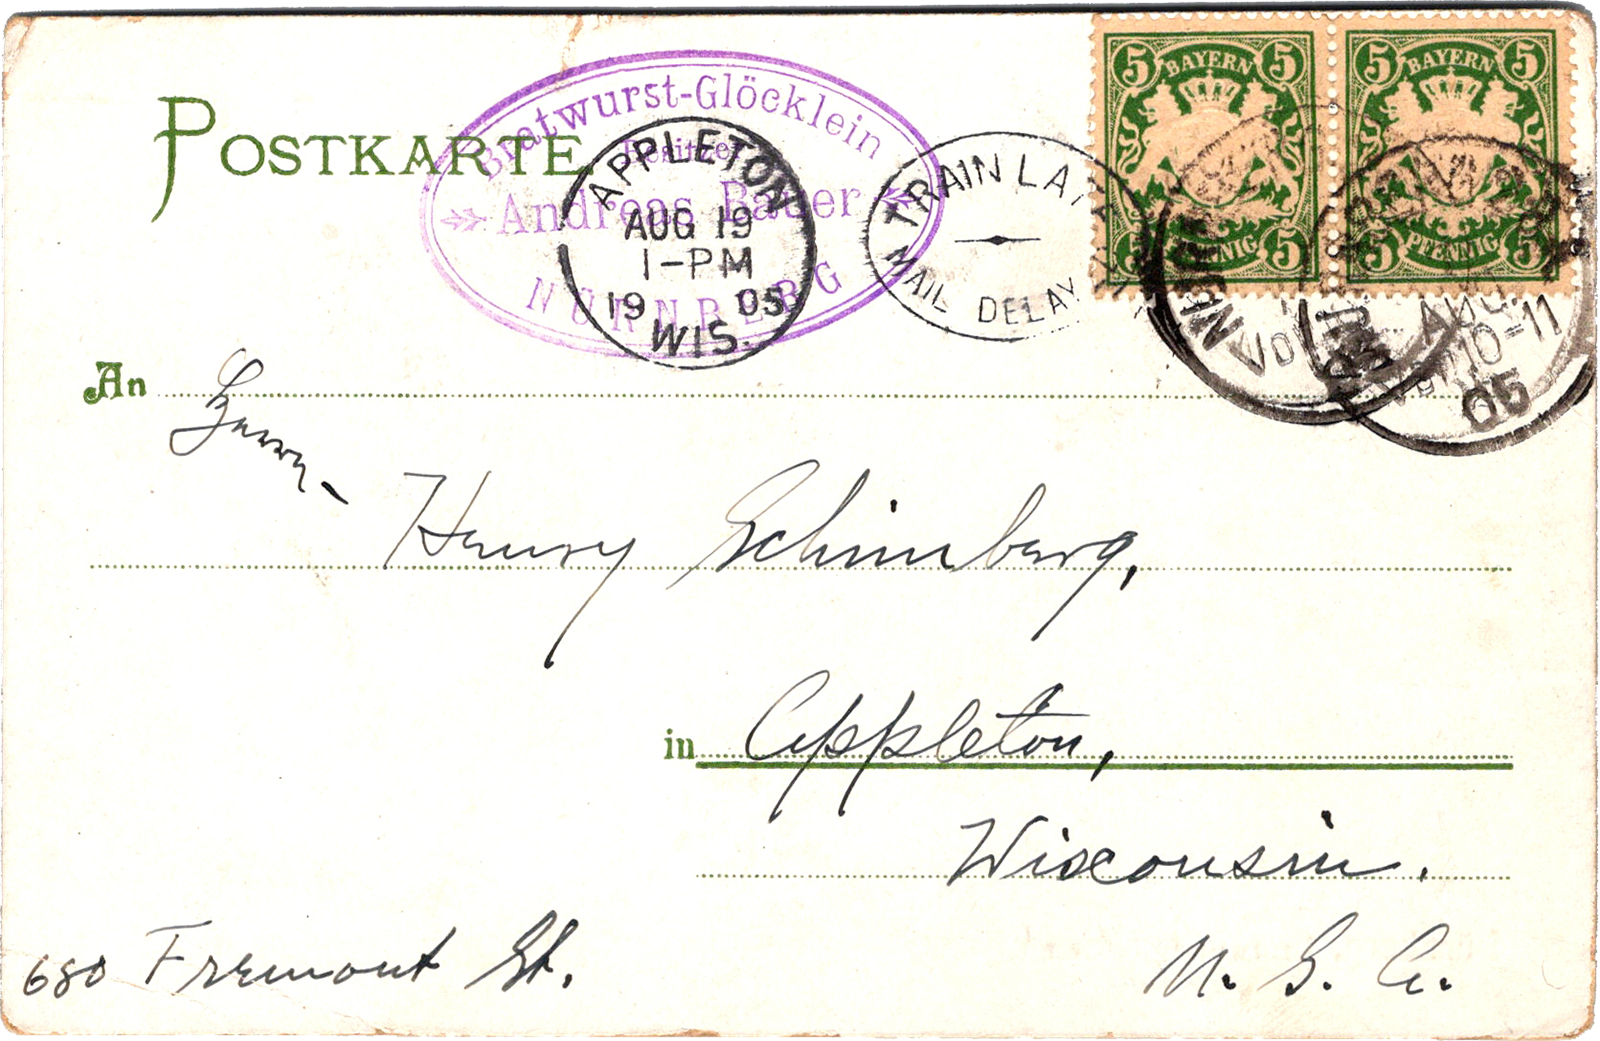 POSTKARTE
Bratwurst-Glöcklein
Besitzer
Andreas Bauer
NÜRNBERG
APPLETON
AUG 19
1-PM
19 05
WIS.
TRAIN LATE
MAIL DELAYED
5 BAYERN 5
5 PFENNIG 5
5 BAYERN 5
5 PFENNIG 5
AUG.
10-11
05
An
Herrn
Henry Schimberg,
in Appleton,
Wisconsin.
680 Fremont St.
U. S. A.